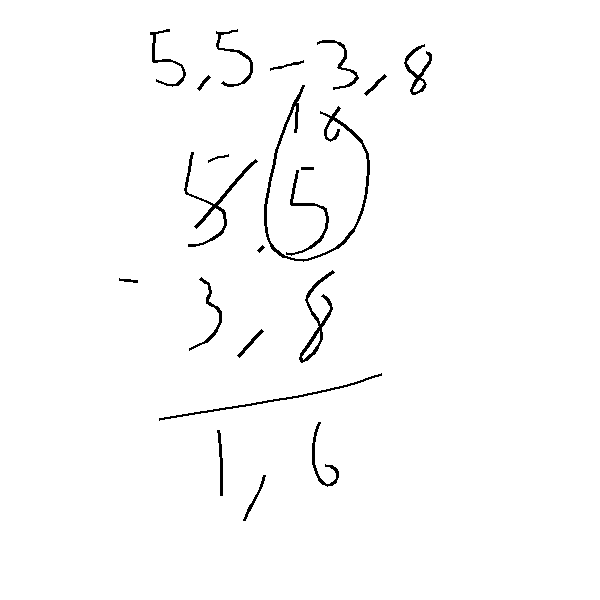 5,5-3,8
10
5,5
-
3,8
1,6